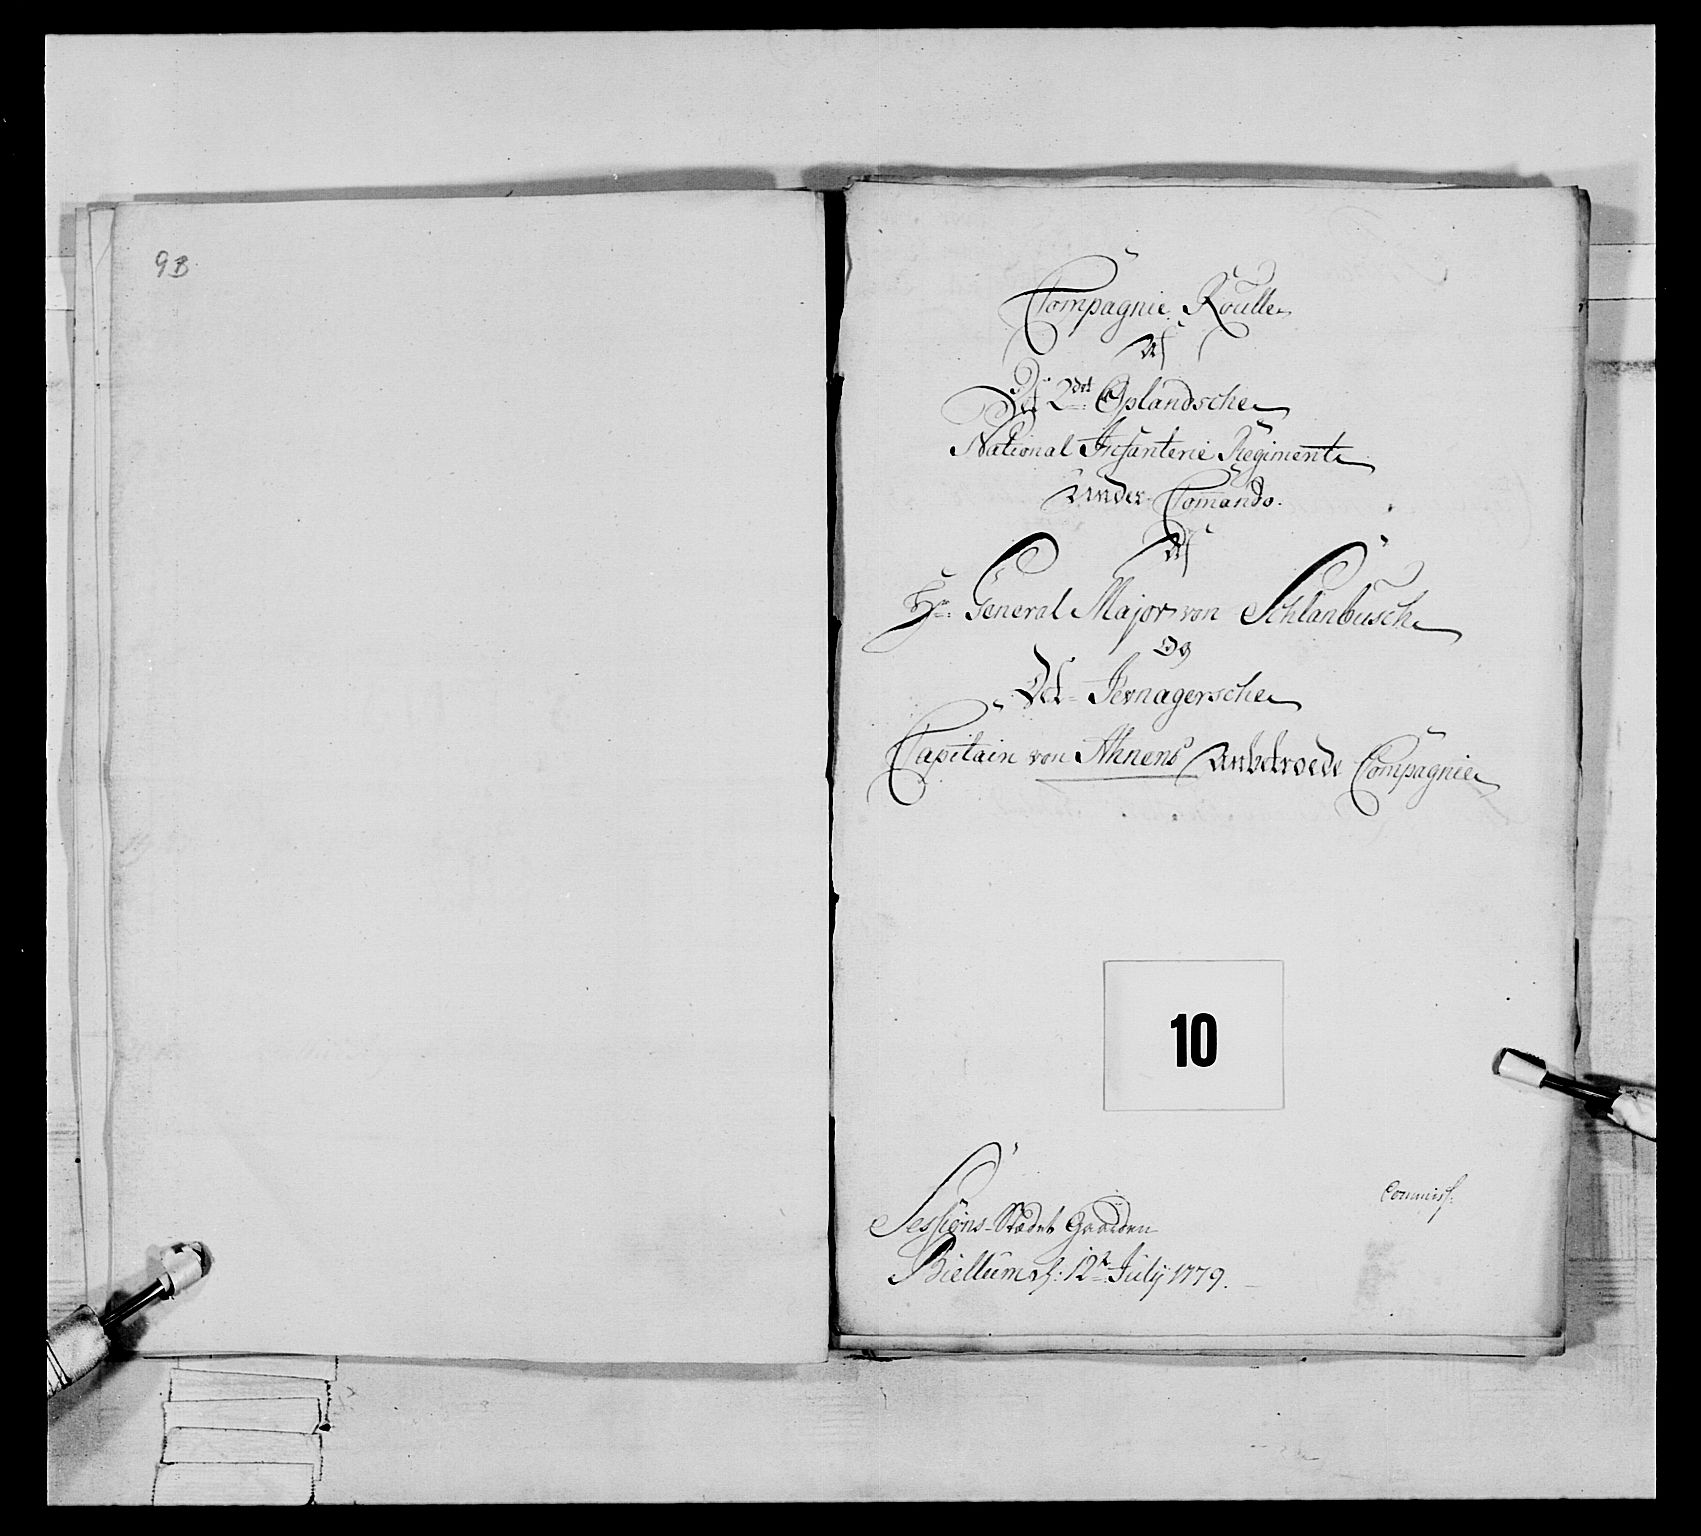 9B
Compagnie Roulle
Af
Det 2det Oplandsche
National Infanterie Regiment
Under Comando.
Af
Hr: General Major von Schlanbusch
Og
Det Jevnagersche
Capitain von Ahnens Anbetroede Compagnie
10
Commiss:
Sessions-Stædet Gaarden
Biellum d: 12te July 1779.